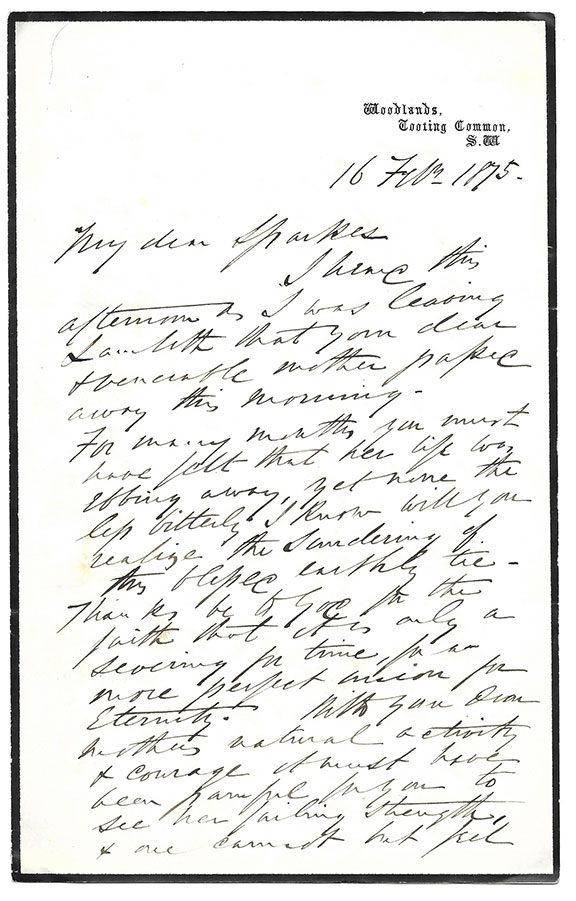 Woodlands,
Tooting Common,
S.W
16 Feb 1875.
My dear Sparkes
I heard this
afternoon as I was leaving
Lambeth that your dear
& venerable mother passed
away this morning.
For many months you must
have felt that her life was
ebbing away, yet none the
less bitterly I know will you
realize the sundering of
this blessed earthly tie -
Thanks be to God for the
faith that it is only a
severing for time, for a
more perfect union for
Eternity. With your dear
mothers natural activity
& courage it must have
been painful for you to
see her failing strength,
& one cannot but feel